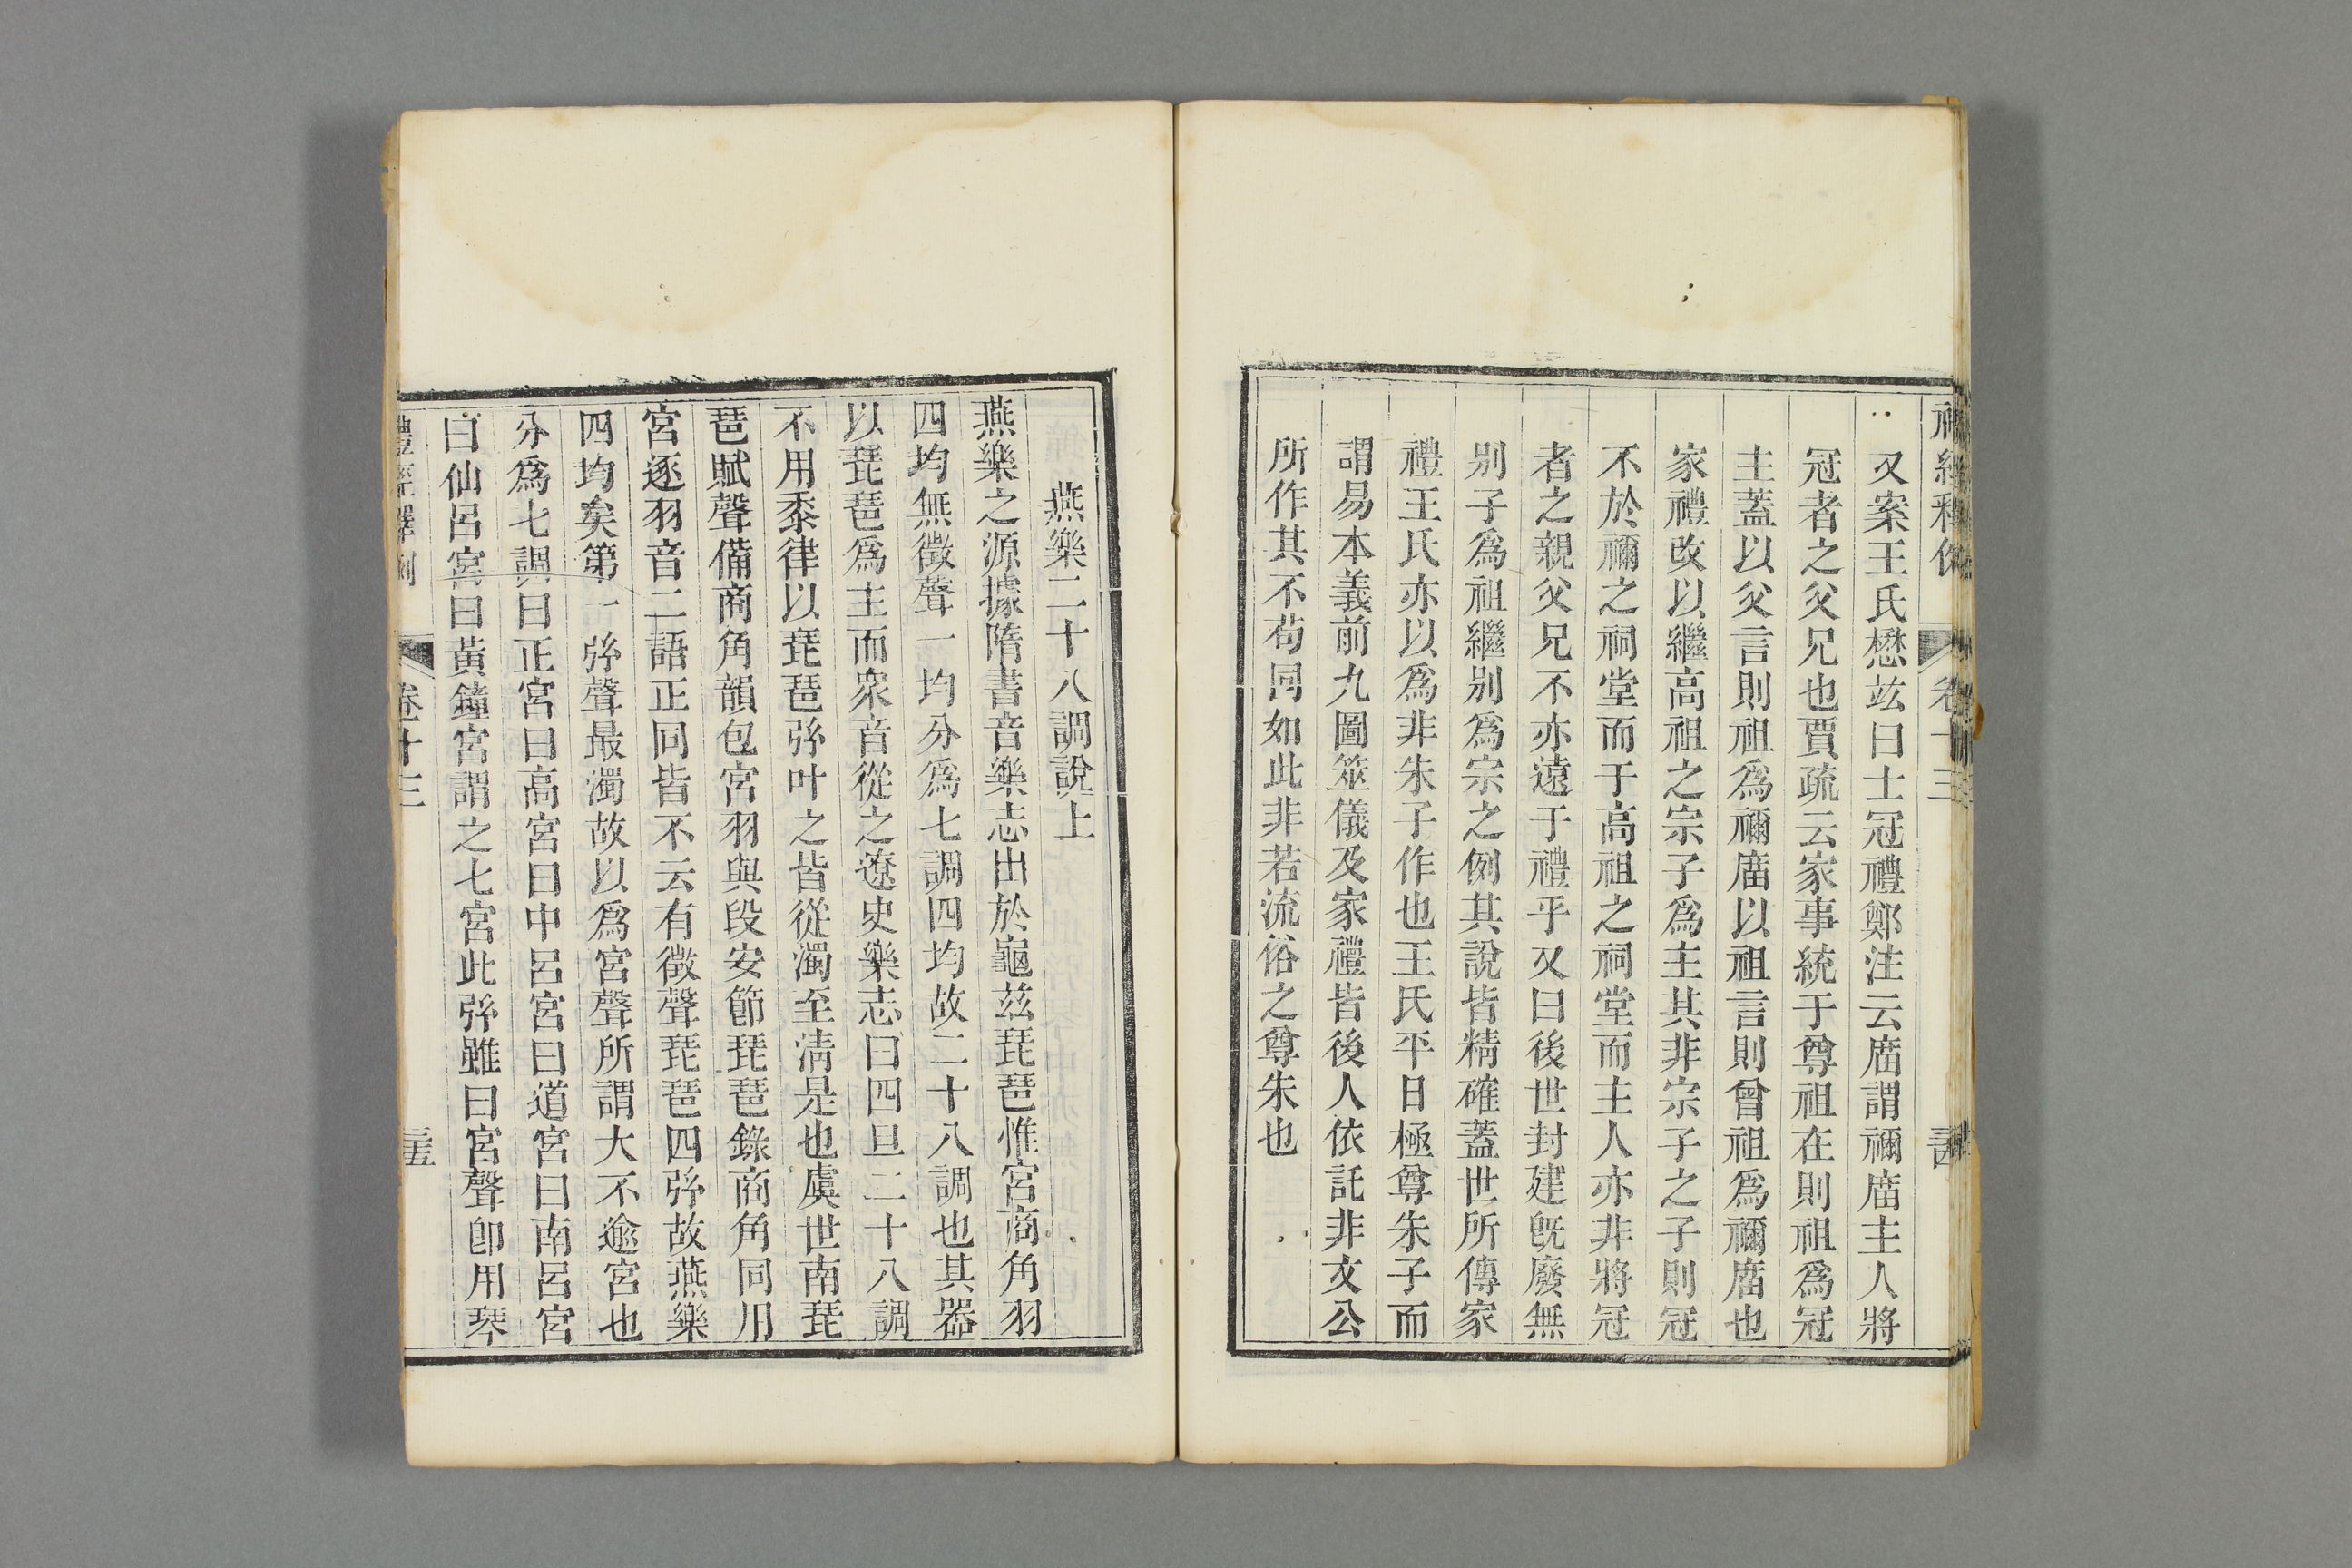 又案王氏懋竑曰士冠禮鄭注云廟謂禰廟主人將
冠者之父兄也賈疏云家事統于尊祖在則祖爲冠
主蓋以父言則祖爲禰廟以祖言則曾祖爲禰廟也
家禮改以繼高祖之宗子爲主其非宗子之子則冠
不於禰之祠堂而于高祖之祠堂而主人亦非將冠
者之親父兄不亦遠于禮乎又曰後世封建旣廢無
别子爲祖繼别爲宗之例其說皆精確蓋世所傳家
禮王氏亦以爲非朱子作也王氏平日極尊朱子而
謂易本義前九圖筮儀及家禮皆後人依託非文公
所作其不苟同如此非若流俗之尊朱也
燕樂二十八調說上
燕樂之源據隋書音樂志出於龜茲琵琶惟宮商角羽
四均無徵聲一均分爲七調四均故二十八調也其器
以琵琶爲主而衆音從之遼史樂志曰四旦二十八調
不用黍律以琵琶弦叶之皆從濁至淸是也虞世南琵
琶賦聲備商角韻包宮羽與段安節琵琶錄商角同用
宮逐羽音二語正同皆不云有徵聲琵琶四弦故燕樂
四均矣第一弦聲最濁故以爲宮聲所謂大不逾宮也
分爲七調曰正宮曰高宮曰中呂宮曰道宮曰南呂宮
曰仙呂宮曰黃鐘宮謂之七宮此弦雖曰宮聲卽用琴
禮經釋例
卷十三